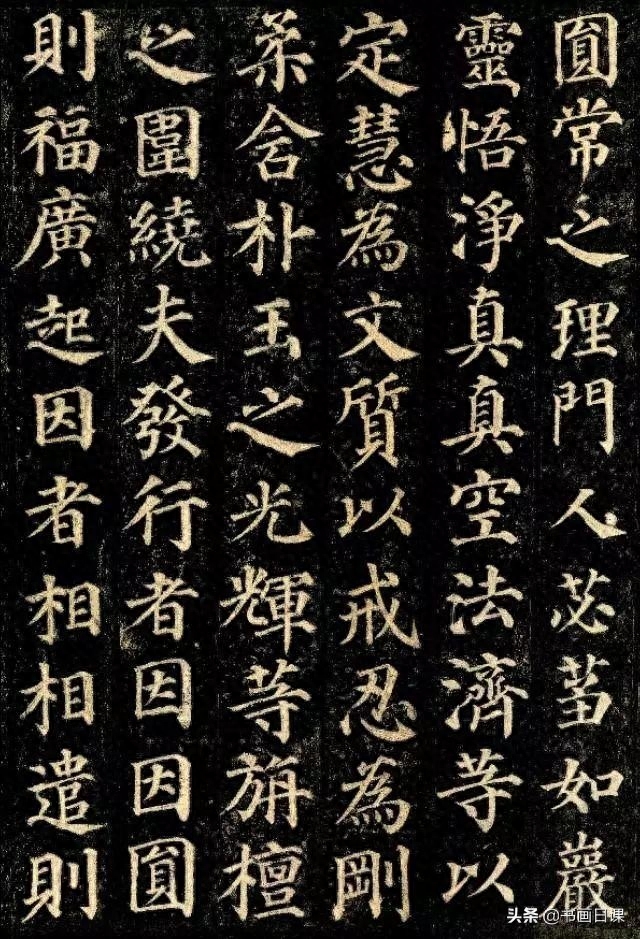 圎常之理門人苾蒭如巖
靈悟淨真真空法濟等以
定慧為文質以戒忍為剛
柔含朴玉之光輝等旃檀
之圍繞夫發行者因因圎
則福廣起因者相相遣則
头条@书画日课